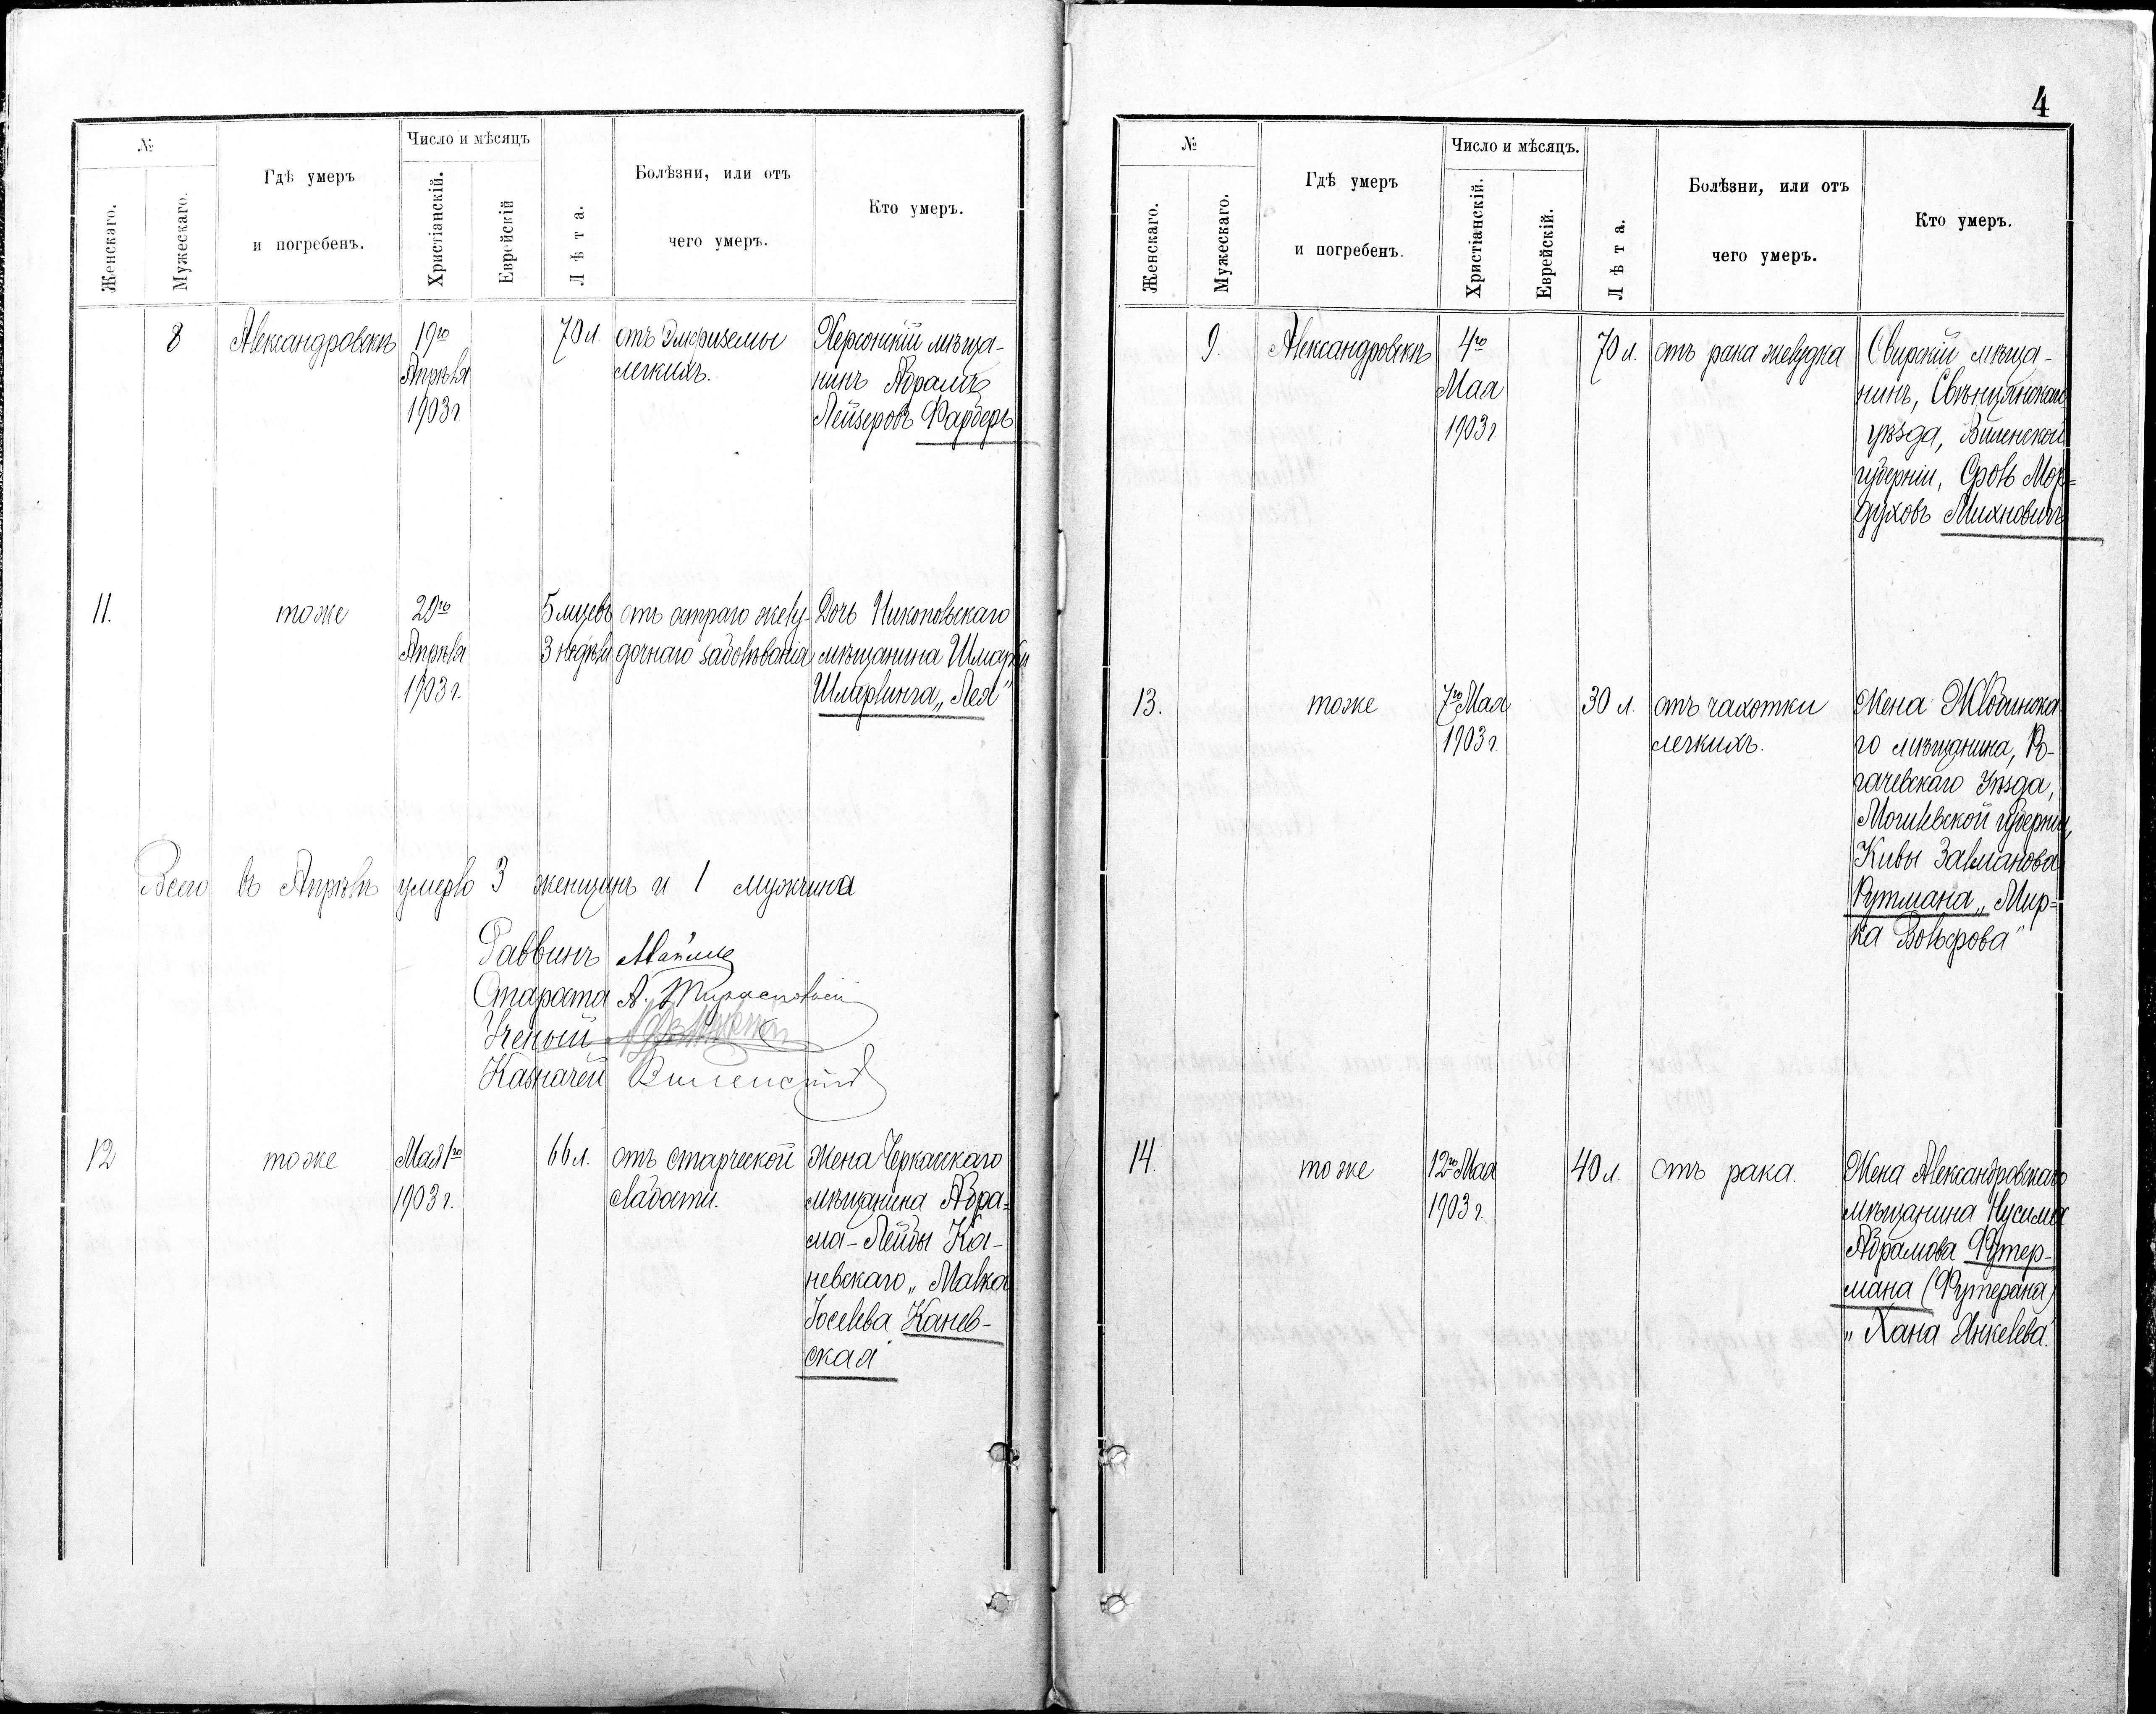 №
Число и мѣсяцъ
Гдѣ умеръ
и погребенъ.
Болѣзни, или отъ
чего умеръ.
Кто умеръ.
Женскаго.
Мужескаго.
Христіанскій.
Еврейскій
Лѣта.
8 Александровскъ 19го 70 л. отъ Эмфиземы Херсонскій мѣща-
Апрѣля легкихъ. нинъ Абрамъ
1903 г. Лейзеровъ Фарберъ
11. тоже 29го 5 мцевъ отъ остраго желу- Дочь Никопольскаго
Апрѣля 3 недѣли дочнаго заболѣванія мѣщанина Шмарьи
1903 г. Шмерлинга „Лея"
Всего въ Апрѣлѣ умерло 3 женщинъ и 1 мужчина
Раввинъ
Староста А. Тираспольскій
Ученый
Казначей Виленскій
12 тоже Мая 1го 66 л. отъ старческой Жена Черкасскаго
1903 г. слабости. мѣщанина Абра-
ма-Лейбы Ка-
невскаго „Малка
Іоселева Канев-
ская"
4
№
Число и мѣсяцъ.
Гдѣ умеръ
и погребенъ.
Болѣзни, или отъ
чего умеръ.
Кто умеръ.
Женскаго.
Мужескаго.
Христіанскій.
Еврейскій.
Лѣта.
9. Александровскъ 4го 70 л. отъ рака желудка Свирскій мѣща-
Мая нинъ, Свѣнцянскаго
1903 г. уѣзда, Виленской
губерніи, Сроль Мор=
духовъ Михновичъ
13. тоже 7го Мая 30 л. отъ чахотки Жена Жлобинска
1903 г. легкихъ. го мѣщанина, Ро-
гачевскаго Уѣзда,
Могилевской губерніи,
Кивы Залманова
Рутмана „Мир=
ка Вольфова"
14. тоже 12го Мая 40 л. отъ рака. Жена Александровскаго
1903 г. мѣщанина Нусима
Абрамова Футер-
мана (Футерана)
„Хана Янкелева."